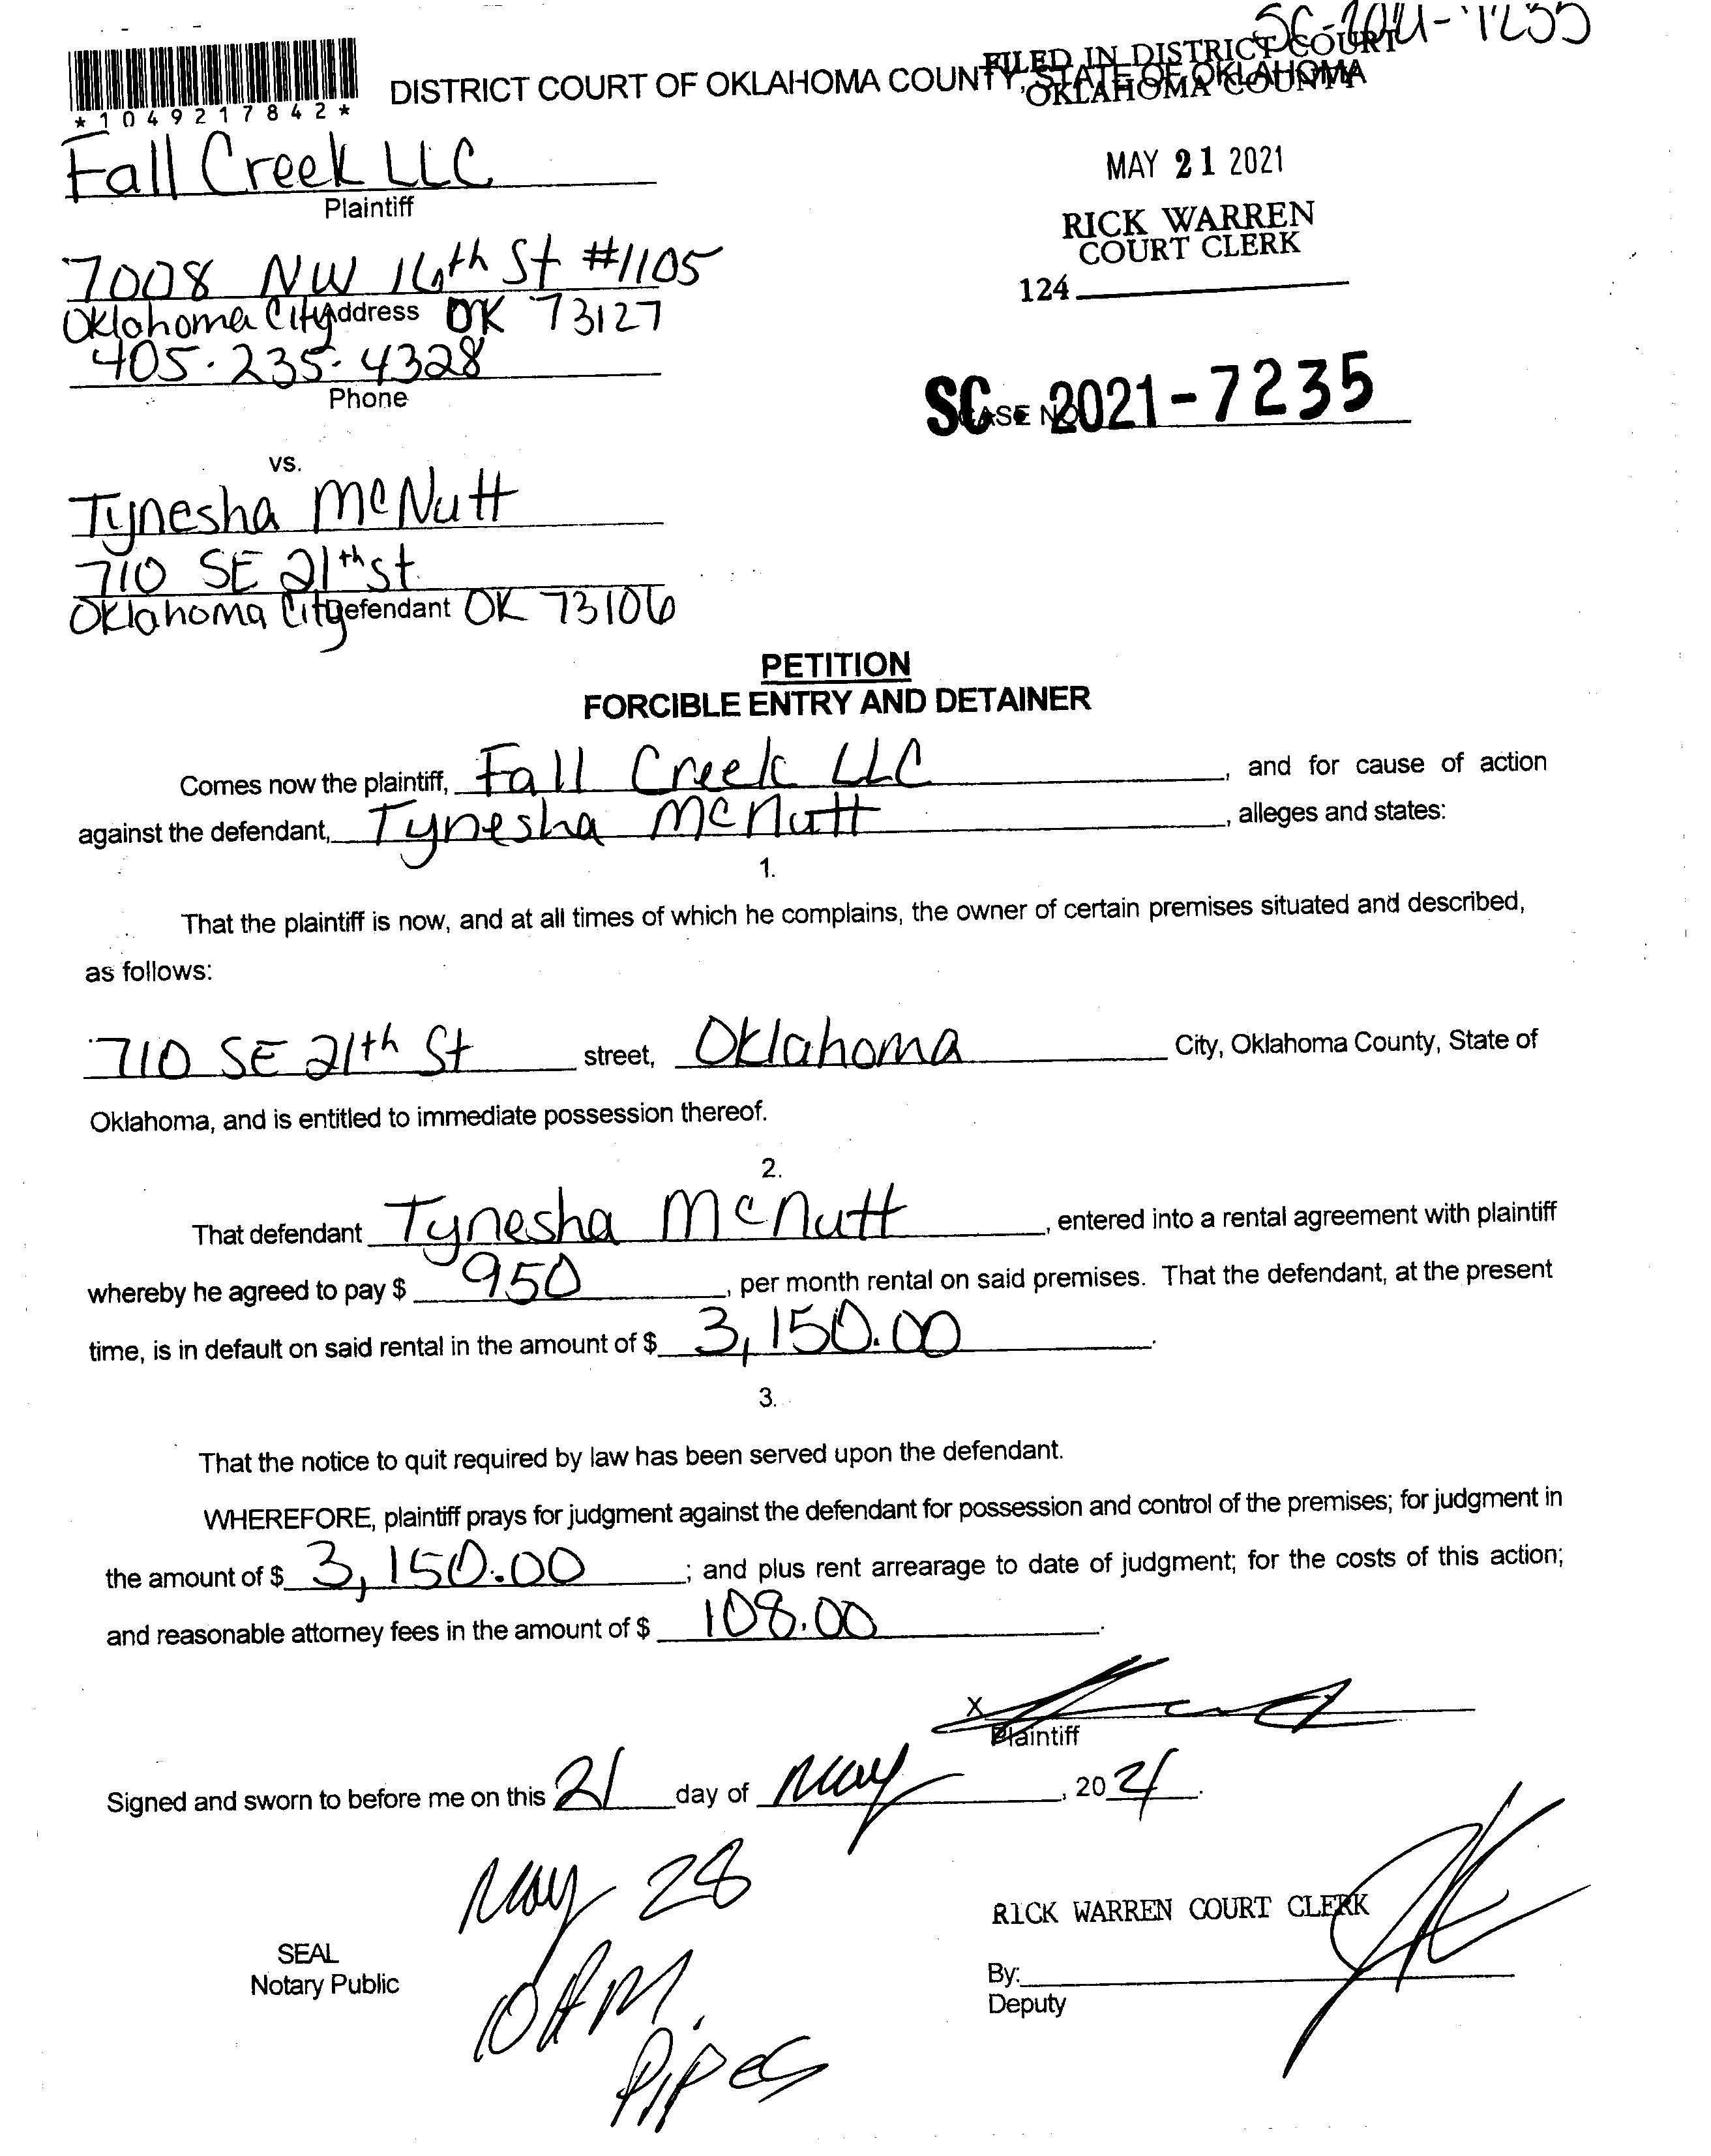 SC-2021-7235
FILED IN DISTRICT COURT
DISTRICT COURT OF OKLAHOMA COUNTY, STATE OF OKLAHOMA
OKLAHOMA COUNTY
*1049217842*
Fall Creek LLC
Plaintiff
MAY 21 2021
RICK WARREN
COURT CLERK
124
7008 NW 16th St #1105
Address
Oklahoma City OK 73127
405-235-4328
Phone
SC 2021-7235
CASE NO.
vs.
Tynesha McNutt
710 SE 21th st
Oklahoma City OK 73106
Defendant
PETITION
FORCIBLE ENTRY AND DETAINER
Comes now the plaintiff, Fall Creek LLC, and for cause of action
against the defendant, Tynesha McNutt, alleges and states:
1.
That the plaintiff is now, and at all times of which he complains, the owner of certain premises situated and described,
as follows:
710 SE 21th St street, Oklahoma City, Oklahoma County, State of
Oklahoma, and is entitled to immediate possession thereof.
2.
That defendant Tynesha McNutt, entered into a rental agreement with plaintiff
whereby he agreed to pay $ 950, per month rental on said premises. That the defendant, at the present
time, is in default on said rental in the amount of $ 3,150.00.
3.
That the notice to quit required by law has been served upon the defendant.
WHEREFORE, plaintiff prays for judgment against the defendant for possession and control of the premises; for judgment in
the amount of $ 3,150.00; and plus rent arrearage to date of judgment; for the costs of this action;
and reasonable attorney fees in the amount of $ 108.00.
X
Plaintiff
Signed and sworn to before me on this 21 day of May, 2021.
May 28
RICK WARREN COURT CLERK
SEAL
Notary Public
10 AM.
By:
Deputy
Pipes